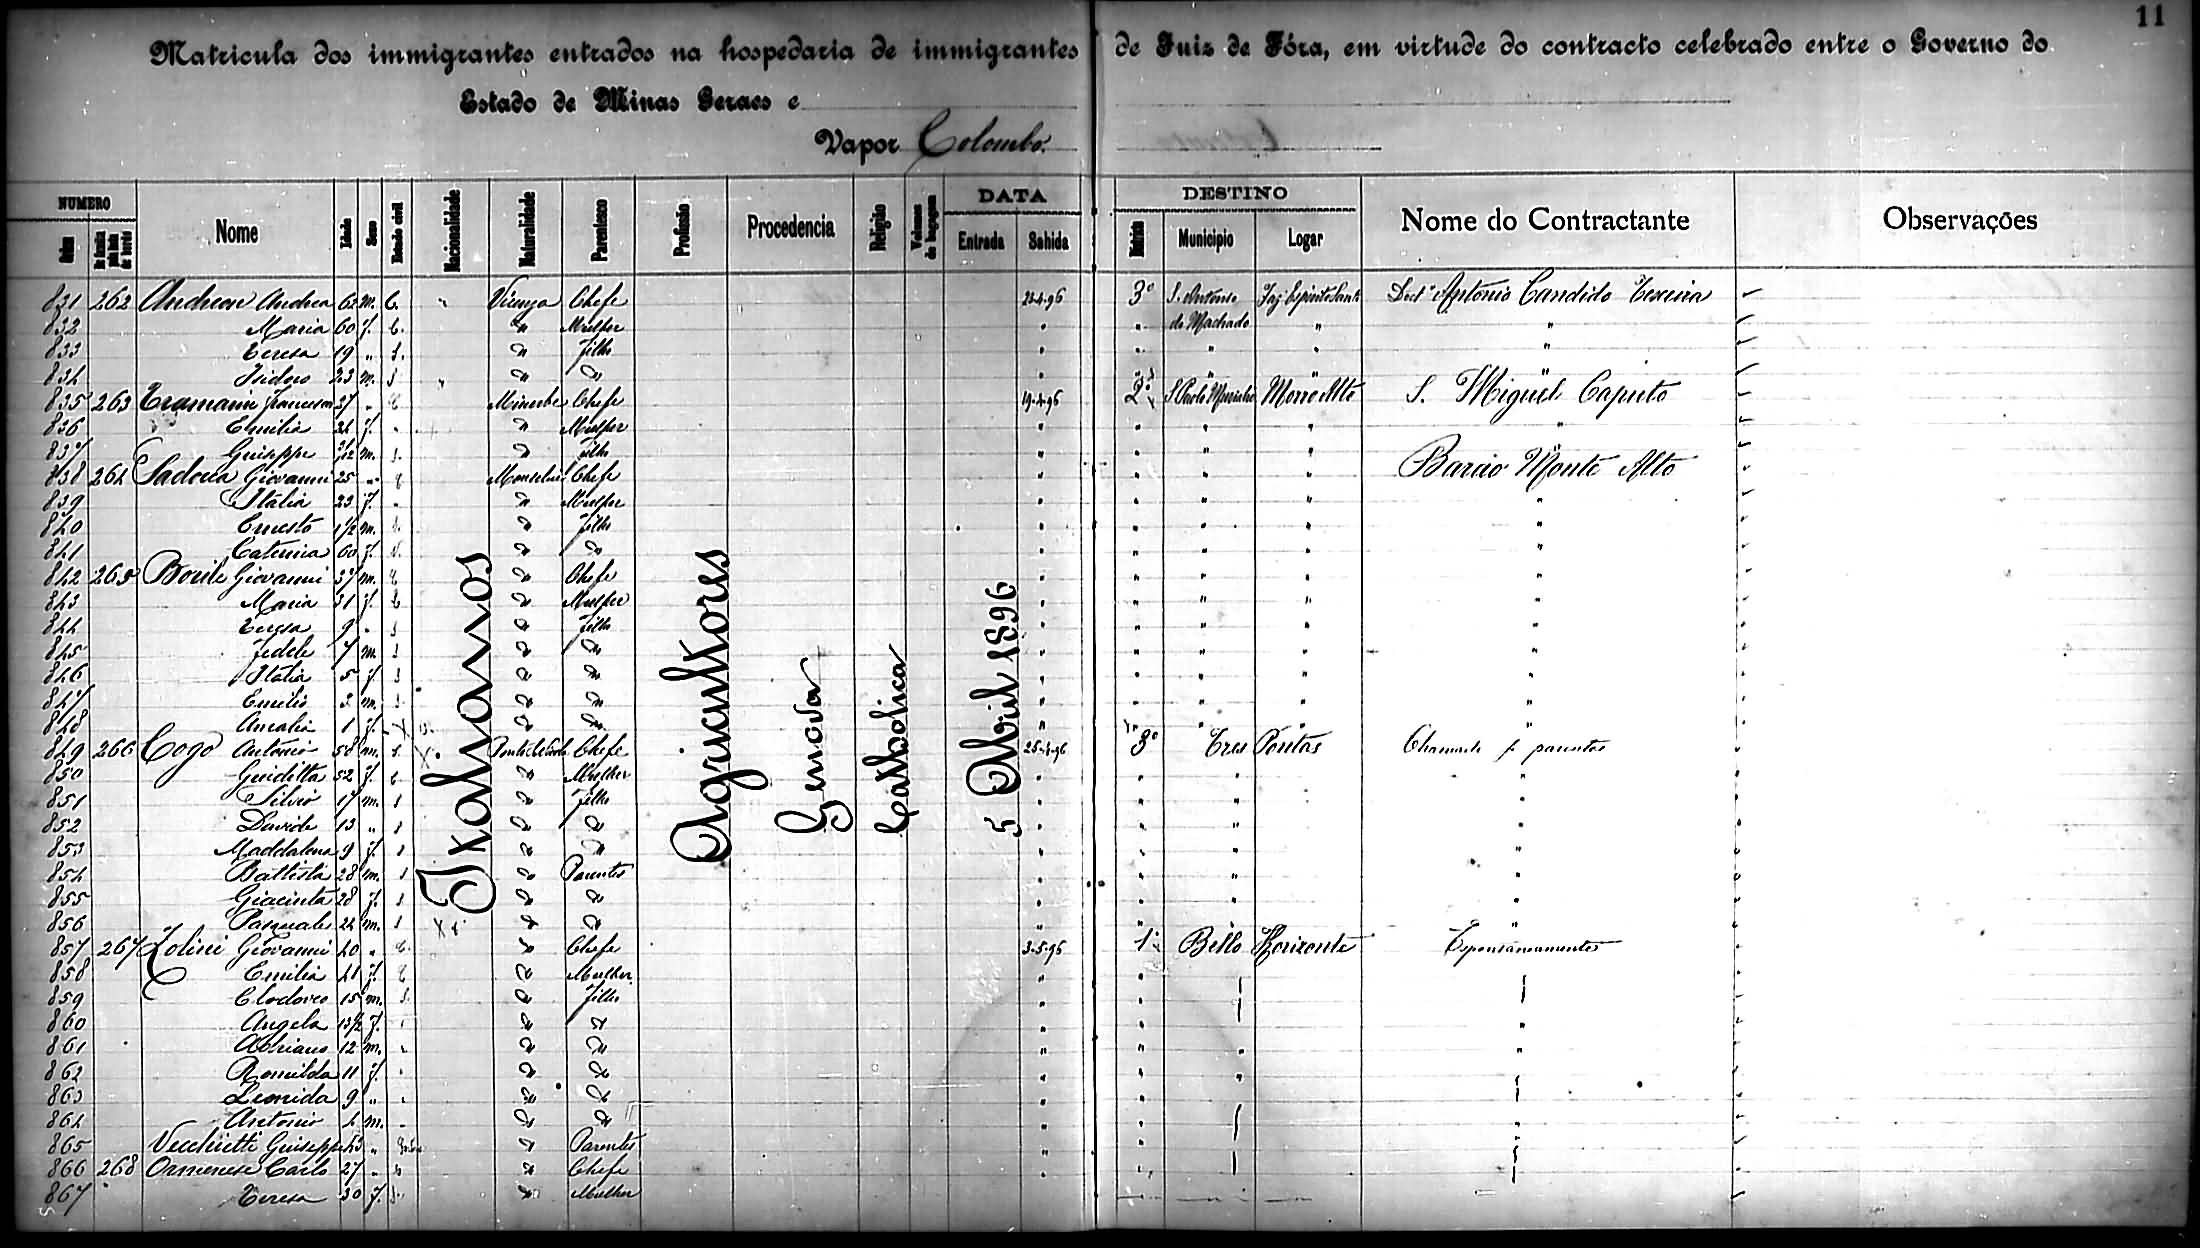 11
Matricula dos immigrantes entrados na hospedaria de immigrantes de Juiz de Fóra, em virtude do contracto celebrado entre o Governo do
Estado de Minas Geraes e
Vapor Colombo.
NUMERO Nome Idade Sexo Estado civil Nacionalidade Naturalidade Parentesco Profissão Procedencia Religião Volumes de bagagem DATA Entrada Sahida DESTINO Municipio Logar Nome do Contractante Observações
Italianos Agricultores Genova Catholica 5 Abril 1896
831 262 Andrea 62 m. C. " Chefe 3º S. Antonio Faz. Espirito Santo Antonio Candido Texeira
832 Maria 60 f. C. " Mulher " do Machado " "
833 Teresa 19 " S. " Filho " " " "
834 Isidoro 23 m. S " " " " " " "
835 263 Francesco 27 " C Minerbe Chefe 19-4-96 2º Morro Alto S. Miguel Caputo
836 Emilia 24 f. " " Mulher " " " " "
837 Giuseppe m. S. " Filho " " " " "
838 264 Giovanni 25 " C Chefe " " " " Barão Monte Alto
839 Italia 23 f. " " Mulher " " " " "
840 Ernesto 1 1/2 m. S. " Filho " " " " "
841 Caterina 60 f. " " " " " " "
842 265 Giovanni 37 m. C " Chefe " " " " "
843 Maria 31 f. C " Mulher " " " " "
844 Teresa 9 " S " Filho " " " " "
845 Fedele 7 m. S " " " " " " "
846 Italia 5 f S " " " " " " "
847 Emilio 3 m. S " " " " " " "
848 Amalia 1 f. " " " " " " "
849 266 Cogo Antonio 58 m. S Chefe 25-4-96 3º Tres Pontas parentes
850 Giuditta 52 f. C " Mulher " " " "
851 Silvio 17 m. S " Filho " " " "
852 Davide 13 " S " " " " " "
853 Maddalena 9 f. S " " " " " "
854 Battista 28 m. S " Parentes " " " "
855 Giacinta 28 f. S " " " " " "
856 Pasquale 24 m. S " " " " " "
857 267 Zolini Giovanni 40 " C. " Chefe 3-5-96 1º Bello Horizonte Espontaneamente
858 Emilia 41 f. C " Mulher " "
859 Clodoveo 15 m. S. " Filho " "
860 Angela 13 1/2 f. " " " " "
861 Adriano 12 m. " " " " " " "
862 Romilda 11 f. " " " " " "
863 Leonida 9 " " " " " "
864 Antonio 4 m. " " " "
865 Vecchietti Giuseppe " " Parentes " " "
866 268 Ormenese Carlo 27 " " " Chefe " "
867 Teresa 30 f. S. " Mulher